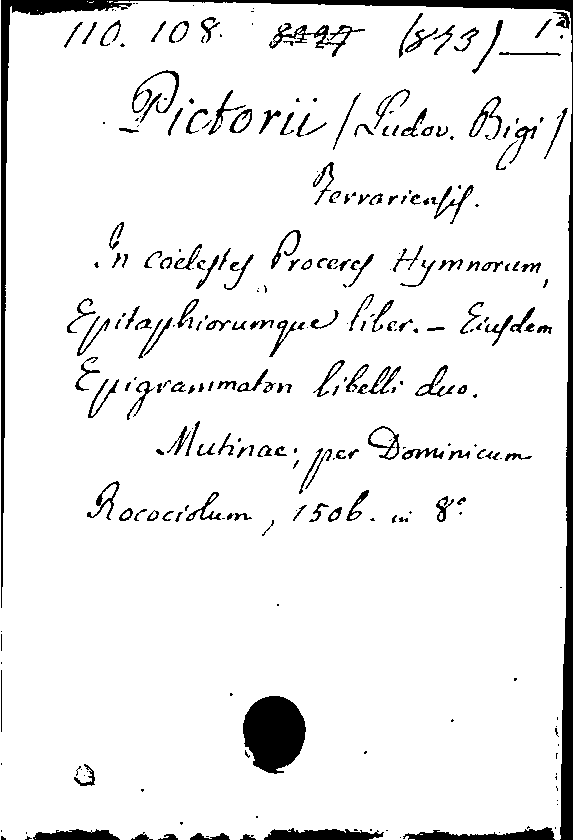 110. 108. (873) 1ª.
Pictorii (Ludov. Bigi)
Ferrariensis.
In coelestes Proceres Hymnorum,
Epitaphiorumque liber. – Eiusdem
Epigrammaton libelli duo.
Mutinae, per Dominicum
Rocociolum, 1506. in 8°